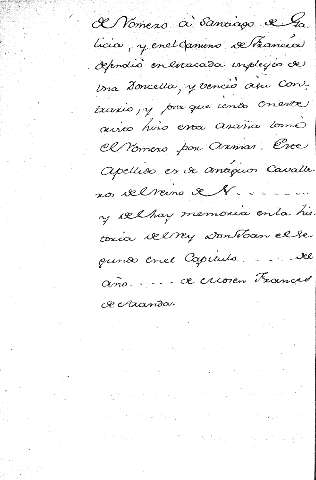 de Romero à Santiago de Ga
licia, y en el Camino de Francia
defendió en estacada un pleyto de
una Doncella, y venció a su con
trario, y por que
esta
el Romero por Armas. Este
Apellido es de antiguos Cavalle
ros del Reino de N. . . . . . . . .
y de el hay memoria en la his
toria del Rey Don Juan el Se
gundo en el Capitulo . . . . . . del
año . . . . . de Mosen Frances
de Aranda.